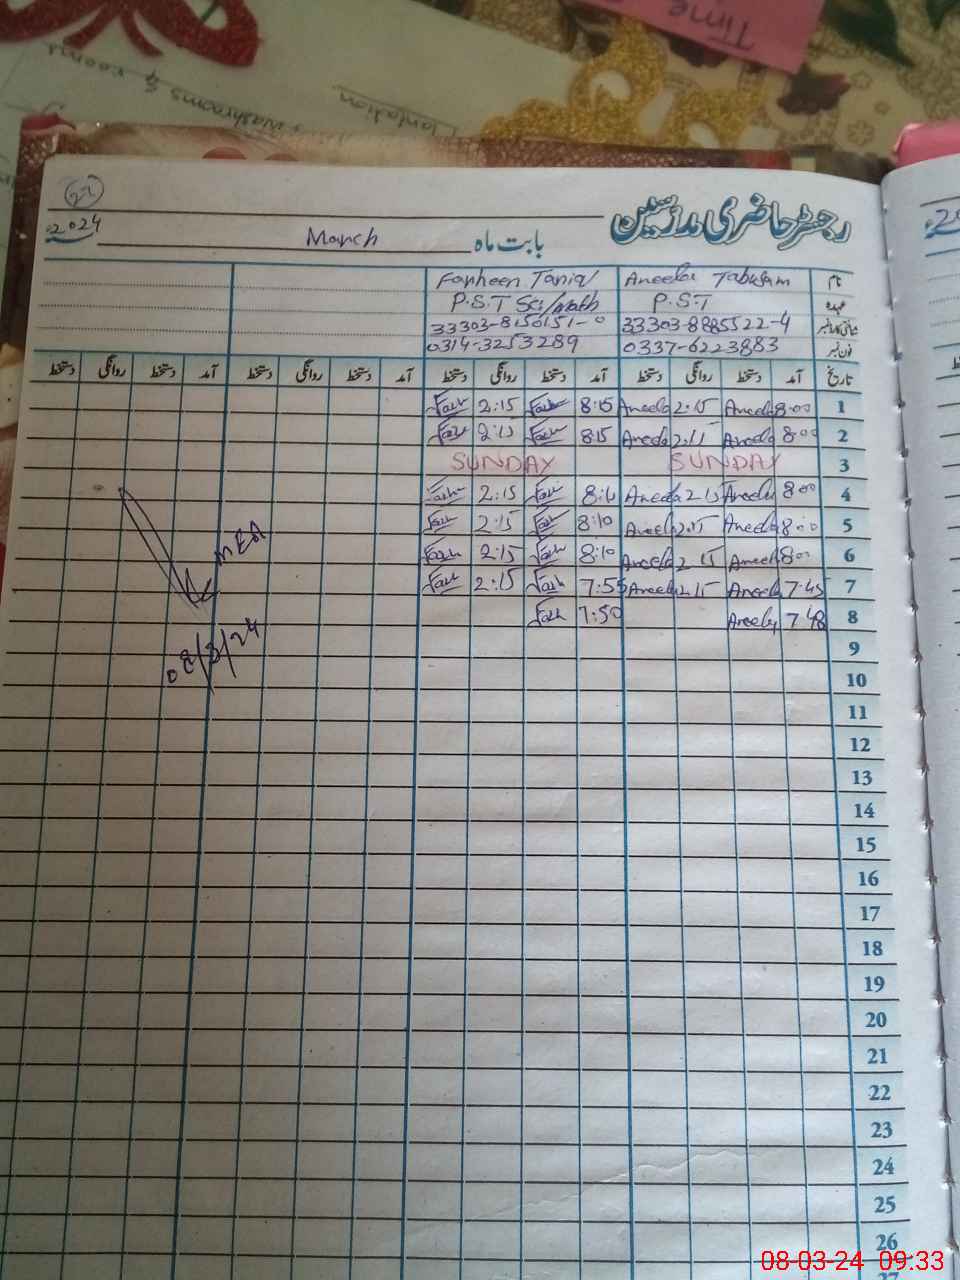 Time
Plantation
washrooms & rooms
22
رجسٹر حاضری مدرسین
بابت ماہ March 2024ء
نام Aneela Tabusam Farheen Tariq
عہدہ P.S.T P.S.T Sci/Math
شناختی کارڈ نمبر 33303-8885522-4 33303-8150151-0
فون نمبر 0337-6223883 0314-3253289
تاریخ آمد دستخط روانگی دستخط آمد دستخط روانگی دستخط آمد دستخط روانگی دستخط آمد دستخط روانگی دستخط
1 8:00 Aneela 2:15 Aneela 8:15 Farh 2:15 Farh
2 8:00 Aneela 2:15 Aneela 8:15 Farh 2:15 Farh
3 SUNDAY SUNDAY
4 8:00 Aneela 2:15 Aneela 8:10 Farh 2:15 Farh
5 8:00 Aneela 2:15 Aneela 8:10 Farh 2:15 Farh
6 8:00 Aneela 2:15 Aneela 8:10 Farh 2:15 Farh
7 7:45 Aneela 2:15 Aneela 7:55 Farh 2:15 Farh
8 7:48 Aneela 7:50 Farh
MEA
08/3/24
9
10
11
12
13
14
15
16
17
18
19
20
21
22
23
24
25
26
27
08-03-24 09:33